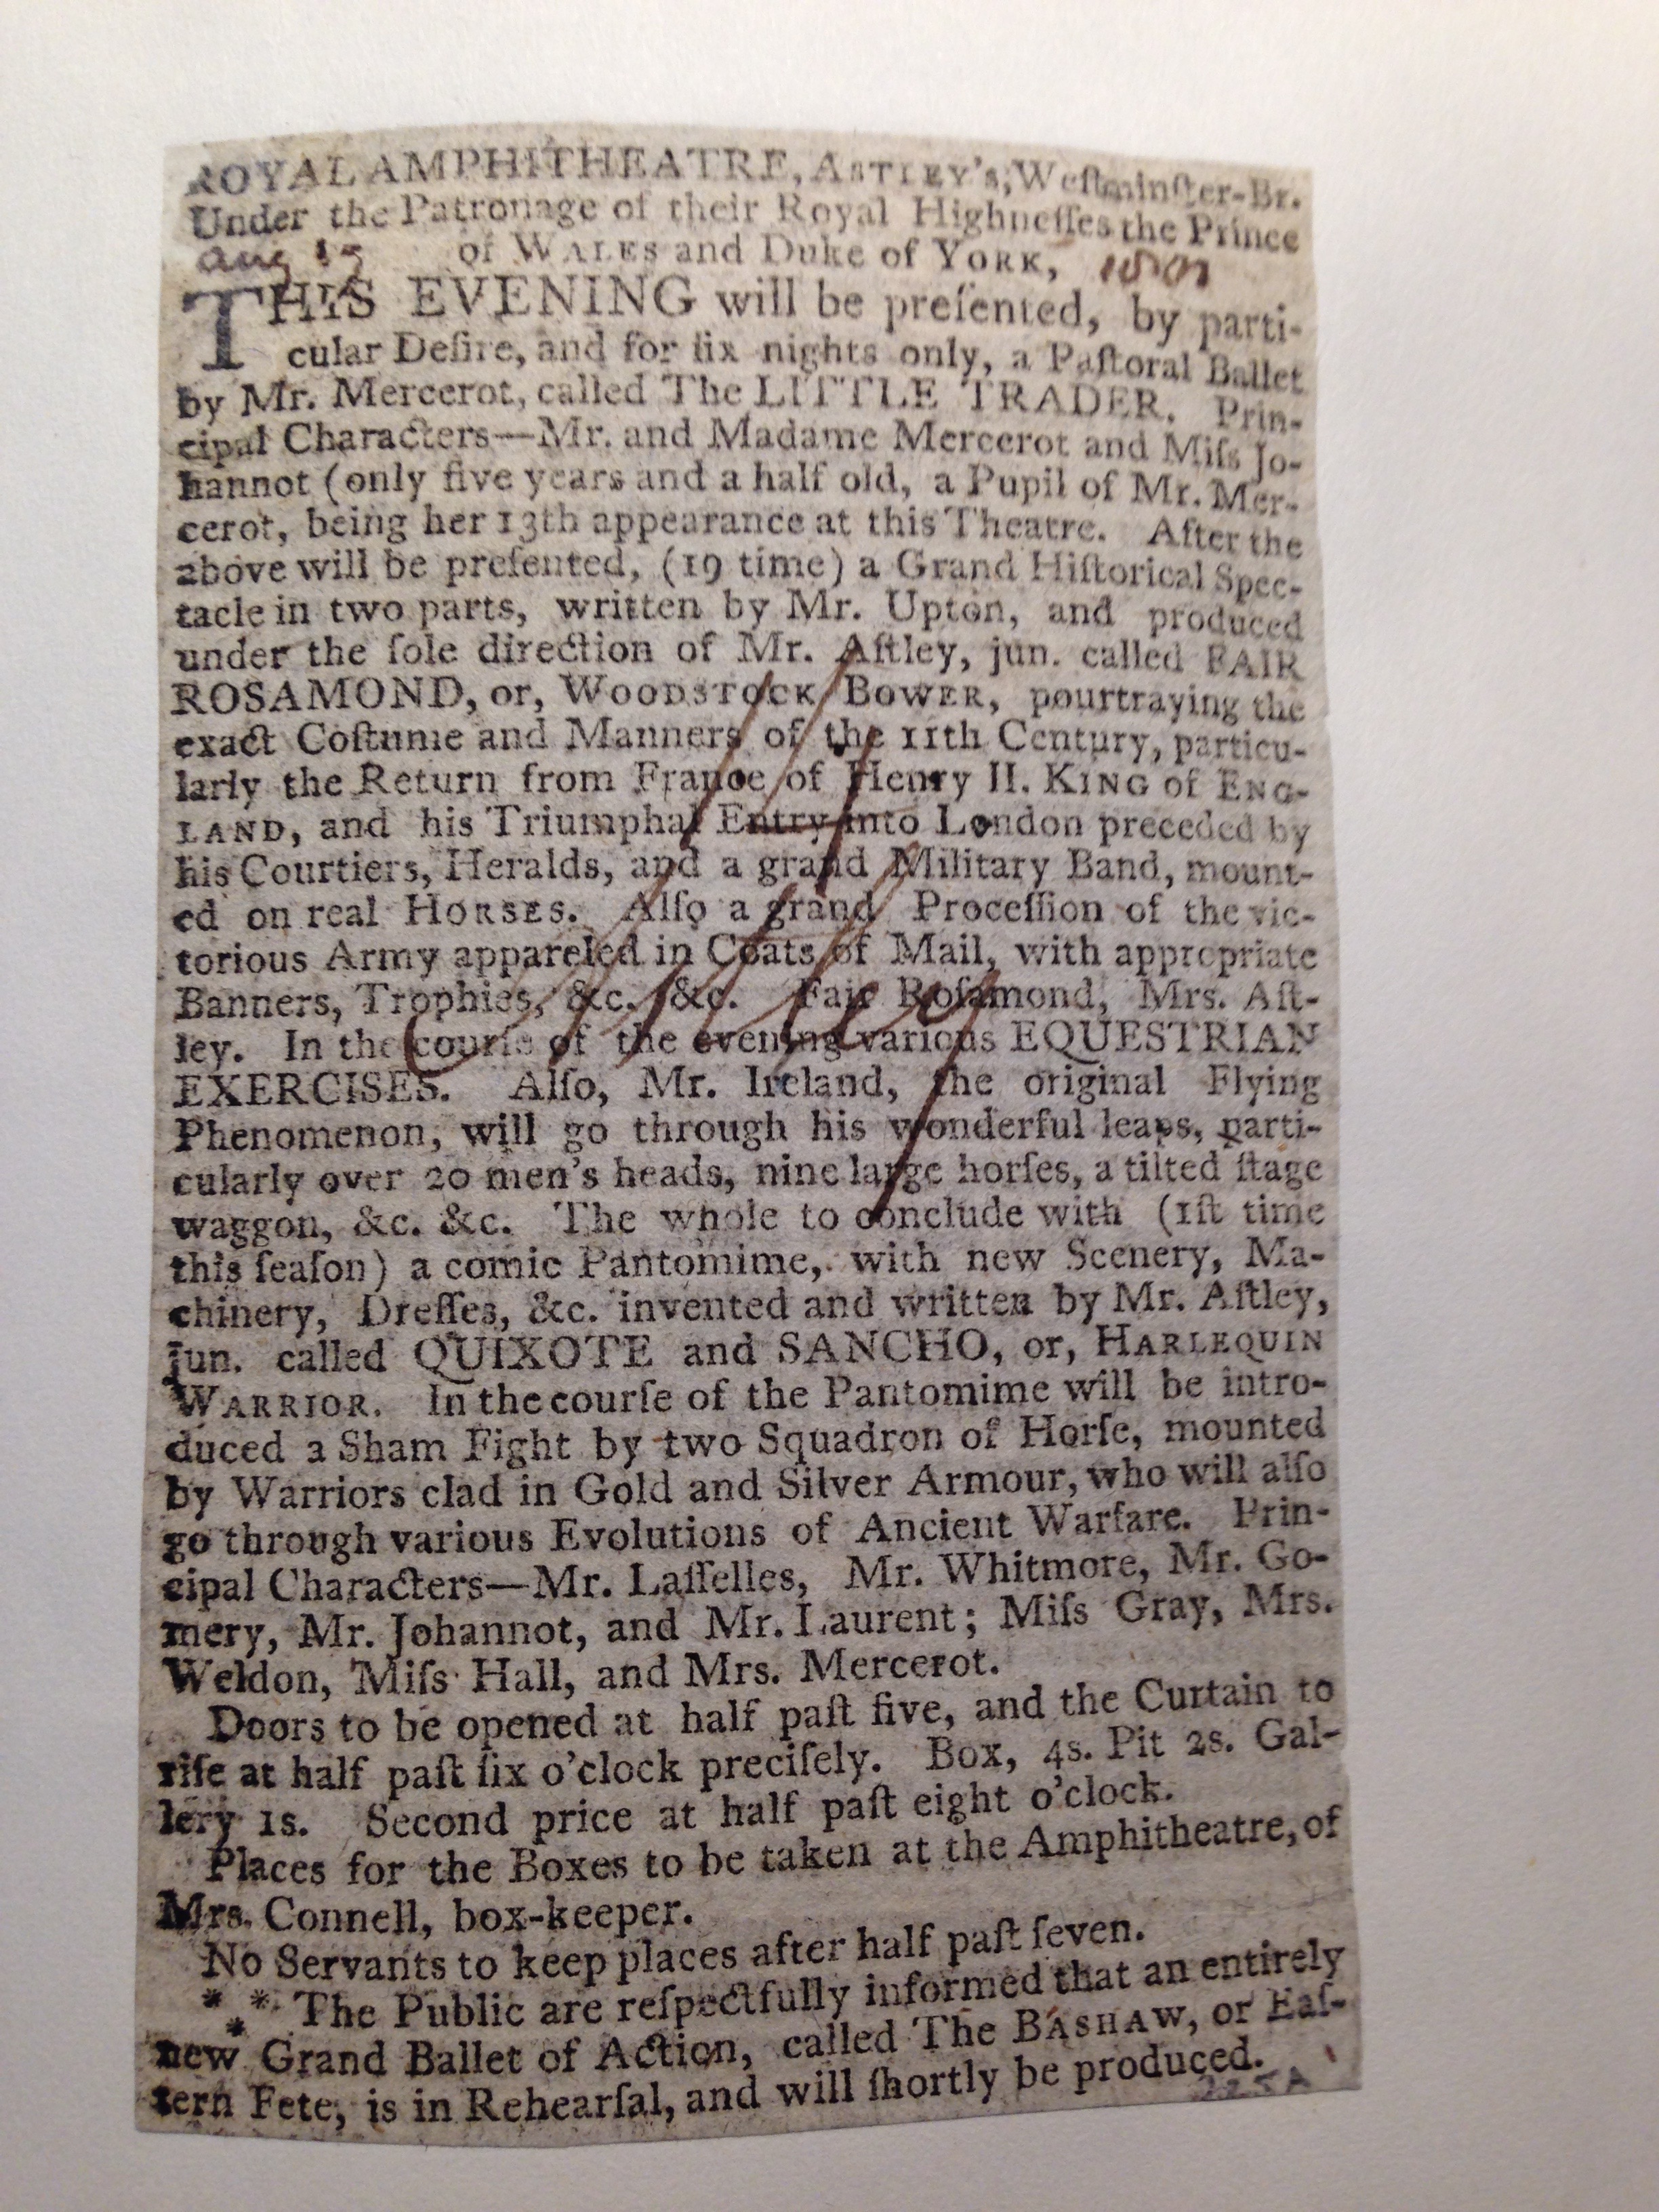 ROYAL AMPHITHEATRE, ASTLEY's, Weſtminſter-Br.
Under the Patronage of their Royal Highneſſes the Prince
of WALES and Duke of YORK,
Aug
THIS EVENING will be preſented, by parti-
cular Deſire, and for ſix nights only, a Paſtoral Ballet
by Mr. Mercerot, called The LITTLE TRADER. Prin-
cipal Characters—Mr. and Madame Mercerot and Miſs Jo-
hannot (only five years and a half old, a Pupil of Mr. Mer-
cerot, being her 13th appearance at this Theatre. After the
above will be preſented, (19 time) a Grand Hiſtorical Spec-
tacle in two parts, written by Mr. Upton, and produced
under the ſole direction of Mr. Aſtley, jun. called FAIR
ROSAMOND, or, WOODSTOCK BOWER, pourtraying the
exact Coſtume and Manners of the 11th Century, particu-
larly the Return from France of Henry II. KING of ENG-
LAND, and his Triumphal Entry into London preceded by
his Courtiers, Heralds, and a grand Military Band, mount-
ed on real HORSES. Alſo a grand Proceſſion of the vic-
torious Army appareled in Coats of Mail, with appropriate
Banners, Trophies, &c. &c. Fair Roſamond, Mrs. Aſt-
ley. In the courſe of the evening various EQUESTRIAN
EXERCISES. Alſo, Mr. Ireland, the original Flying
Phenomenon, will go through his wonderful leaps, parti-
cularly over 20 men's heads, nine large horſes, a tilted ſtage
waggon, &c. &c. The whole to conclude with (1ſt time
this ſeaſon) a comic Pantomime, with new Scenery, Ma-
chinery, Dreſſes, &c. invented and written by Mr. Aſtley,
jun. called QUIXOTE and SANCHO, or, HARLEQUIN
WARRIOR. In the courſe of the Pantomime will be intro-
duced a Sham Fight by two Squadron of Horſe, mounted
by Warriors clad in Gold and Silver Armour, who will alſo
go through various Evolutions of Ancient Warfare. Prin-
cipal Characters—Mr. Laſſelles, Mr. Whitmore, Mr. Go-
mery, Mr. Johannot, and Mr. Laurent; Miſs Gray, Mrs.
Weldon, Miſs Hall, and Mrs. Mercerot.
Doors to be opened at half paſt five, and the Curtain to
riſe at half paſt ſix o'clock preciſely. Box, 4s. Pit 2s. Gal-
lery 1s. Second price at half paſt eight o'clock.
Places for the Boxes to be taken at the Amphitheatre, of
Mrs. Connell, box-keeper.
No Servants to keep places after half paſt ſeven.
*** The Public are reſpectfully informed that an entirely
new Grand Ballet of Action, called The BASHAW, or Eaſ-
tern Fete, is in Rehearſal, and will ſhortly be produced.